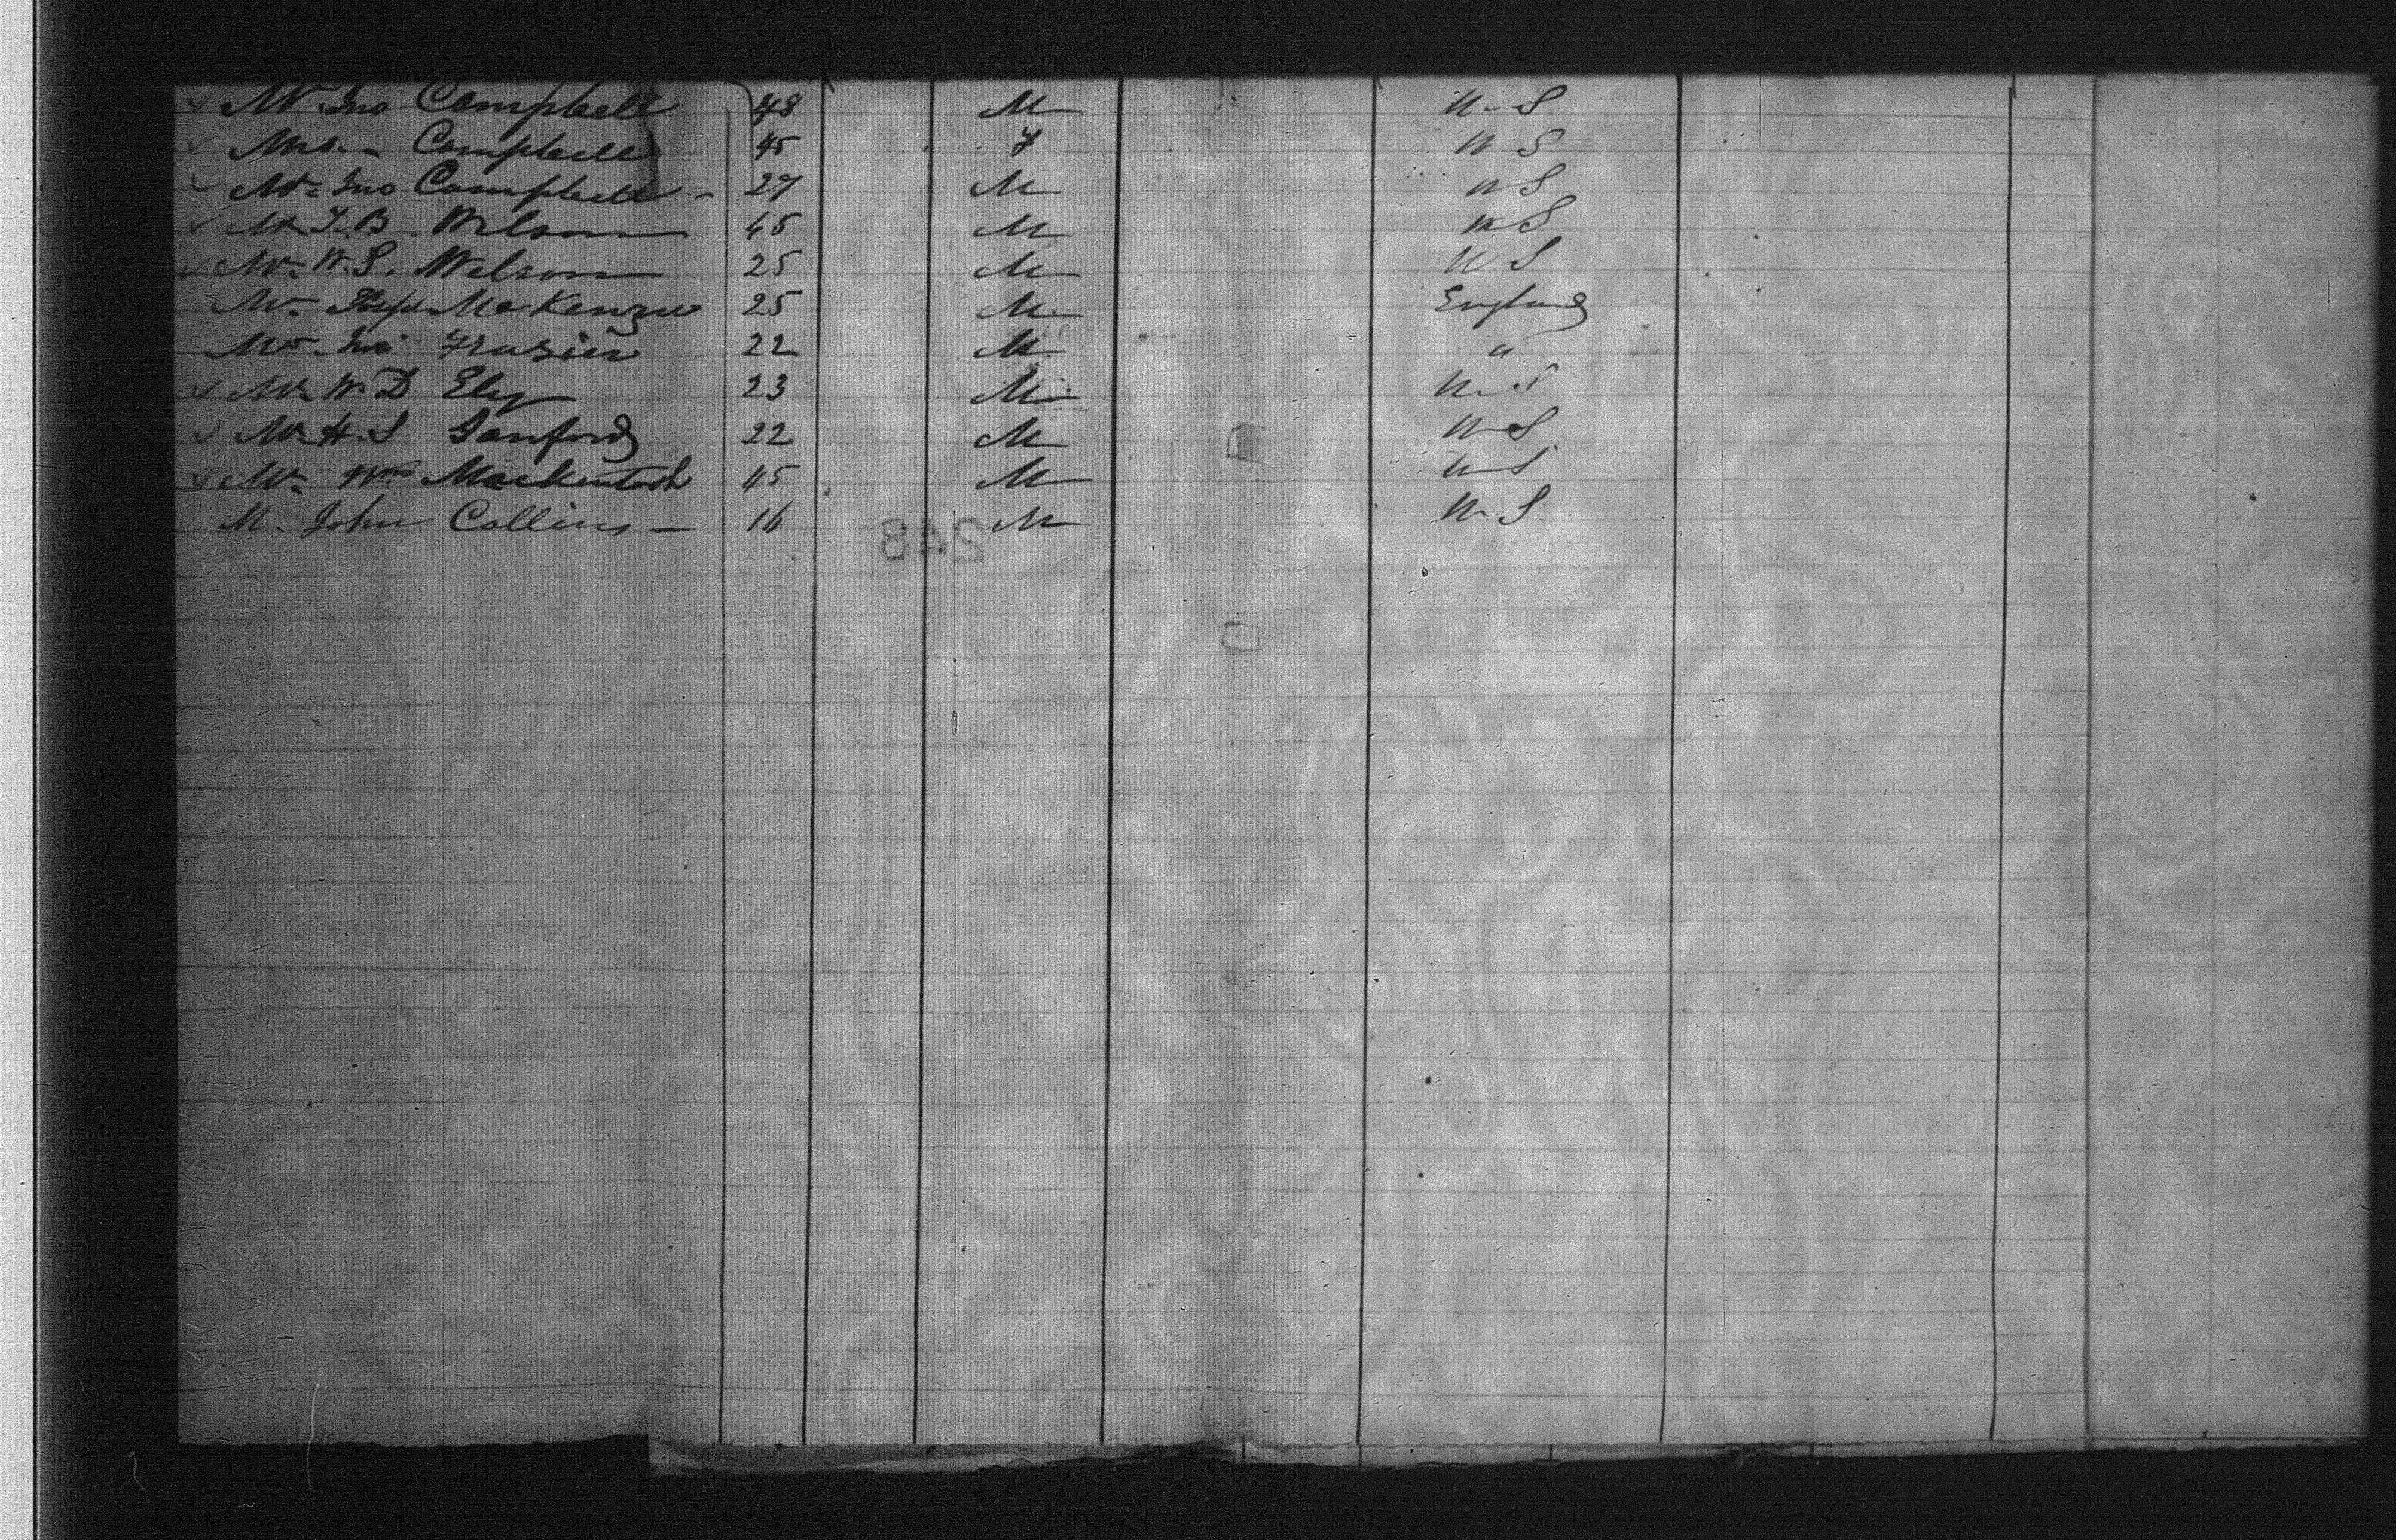 ✓ Mr. Jno Campbell 48 M U.S
✓ Mrs. - Campbell 45 F U S
✓ Mr. Jno Campbell - 27 M U S
✓ Mr. T. B. Wilson 45 M U S
✓ Mr. W. S. Wilson 25 M U S
Mr. Joseph McKenzie 25 M. England
Mr. Jno Frasier 22 M. "
✓ Mr. W. D Ely 23 M U.S
✓ Mr. H. S Sanford 22 M U.S.
✓ Mr. Wm Mackintosh 45 M U S
M. John Collins - 16 M U. S
248